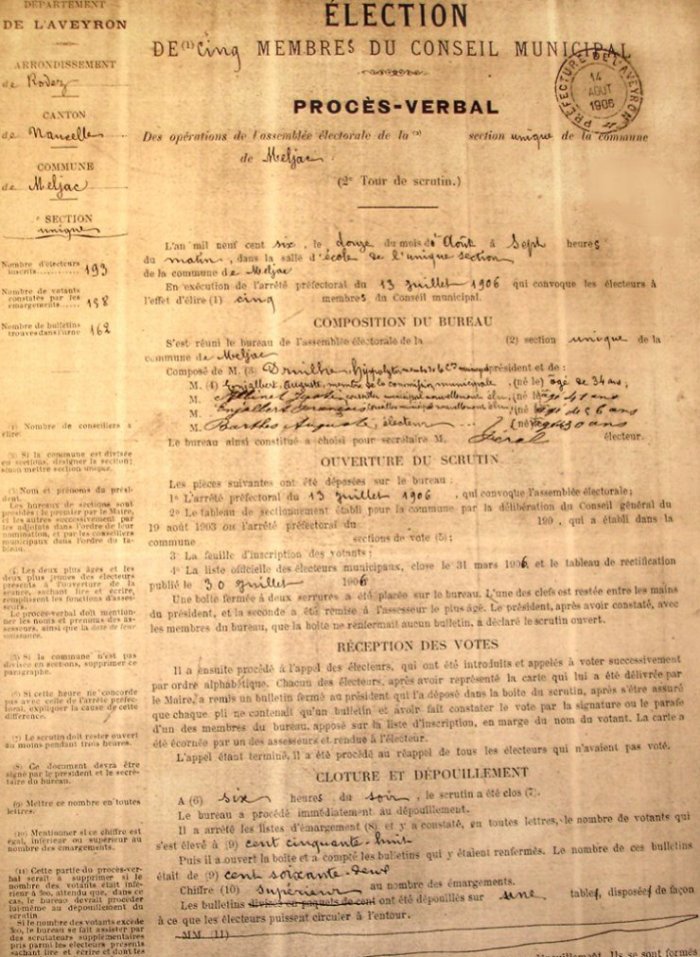 DÉPARTEMENT
DE L'AVEYRON
ARRONDISSEMENT
de Rodez
CANTON
de Naucelle
COMMUNE
de Meljac
SECTION
unique
Nombre d'électeurs
inscrits 193
Nombre de votants
constatés par les
émargements 158
Nombre de bulletins
trouvés dans l'urne 162
(1) Nombre de conseillers à
élire.
(2) Si la commune est divisée
en sections, désigner la section;
sinon mettre section unique.
(3) Nom et prénoms du prési-
dent.
Les bureaux de sections sont
présidés: le premier par le Maire,
et les autres successivement par
les adjoints dans l'ordre de leur
nomination, et par les conseillers
municipaux dans l'ordre du ta-
bleau.
(4) Les deux plus âgés et les
deux plus jeunes des électeurs
présents à l'ouverture de la
séance, sachant lire et écrire,
remplissent les fonctions d'asses-
seurs.
Le procès-verbal doit mention-
ner les noms et prénoms des as-
sesseurs, ainsi que la date de leur
naissance.
(5) Si la commune n'est pas
divisée en sections, supprimer ce
paragraphe.
(6) Si cette heure ne concorde
pas avec celle de l'arrêté préfec-
toral, expliquer la cause de cette
différence.
(7) Le scrutin doit rester ouvert
au moins pendant trois heures.
(8) Ce document devra être
signé par le président et le secré-
taire du bureau.
(9) Mettre ce nombre en toutes
lettres.
(10) Mentionner si ce chiffre est
égal, inférieur ou supérieur au
nombre des émargements.
(11) Cette partie du procès-ver-
bal serait à supprimer si le
nombre des votants était infé-
rieur à 300, attendu que, dans ce
cas, le bureau devrait procéder
lui-même au dépouillement du
scrutin
Si le nombre des votants excède
300, le bureau se fait assister par
des scrutateurs supplémentaires
pris parmi les électeurs présents
sachant lire et écrire et dont les
ÉLECTION
DE (1) cinq MEMBRES DU CONSEIL MUNICIPAL
PRÉFECTURE DE L'AVEYRON
14
AOUT
1906
PROCÈS-VERBAL
Des opérations de l'assemblée électorale de la (2) section unique de la commune
de Meljac
(2e Tour de scrutin.)
L'an mil neuf cent six, le douze du mois d'Août à Sept heures
du matin, dans la salle d'école de l'unique section
de la commune de Meljac
En exécution de l'arrêté préfectoral du 13 juillet 1906 qui convoque les électeurs à
l'effet d'élire (1) cinq membres du Conseil municipal.
COMPOSITION DU BUREAU
S'est réuni le bureau de l'assemblée électorale de la (2) section unique de la
commune de Meljac
Composé de M. (3) Hippolyte président et de:
M. (4) Enjalbert, Auguste, membre de la commission municipale, (né le) âgé de 34 ans;
M. conseiller municipal nouvellement élu, (né le) âgé 41 ans
M. Enjalbert François conseiller municipal nouvellement élu, (né le) âgé de 56 ans
M. Barthes Auguste, électeur (né le) âgé 30 ans
Le bureau ainsi constitué a choisi pour secrétaire M. électeur.
OUVERTURE DU SCRUTIN
Les pièces suivantes ont été déposées sur le bureau:
1° L'arrêté préfectoral du 13 juillet 1906, qui convoque l'assemblée électorale;
2° Le tableau de sectionnement établi pour la commune par la délibération du Conseil général du
19 août 1903 ou l'arrêté préfectoral du 190 , qui a établi dans la
commune sections de vote (5);
3° La feuille d'inscription des votants;
4° La liste officielle des électeurs municipaux, close le 31 mars 1906, et le tableau de rectification
publié le 30 juillet 1906
Une boîte fermée à deux serrures a été placée sur le bureau. L'une des clefs est restée entre les mains
du président, et la seconde a été remise à l'assesseur le plus âgé. Le président, après avoir constaté, avec
les membres du bureau, que la boîte ne renfermait aucun bulletin, a déclaré le scrutin ouvert.
RÉCEPTION DES VOTES
Il a ensuite procédé à l'appel des électeurs, qui ont été introduits et appelés à voter successivement
par ordre alphabétique. Chacun des électeurs, après avoir représenté la carte qui lui a été délivrée par
le Maire, a remis un bulletin fermé au président qui l'a déposé dans la boîte du scrutin, après s'être assuré
que chaque pli ne contenait qu'un bulletin et avoir fait constater le vote par la signature ou le parafe
d'un des membres du bureau, apposé sur la liste d'inscription, en marge du nom du votant. La carte a
été écornée par un des assesseurs et rendue à l'électeur.
L'appel étant terminé, il a été procédé au réappel de tous les électeurs qui n'avaient pas voté.
CLOTURE ET DÉPOUILLEMENT
A (6) six heures du soir, le scrutin a été clos (7).
Le bureau a procédé immédiatement au dépouillement.
Il a arrêté les listes d'émargement (8) et y a constaté, en toutes lettres, le nombre de votants qui
s'est élevé à (9) cent cinquante-huit
Puis il a ouvert la boîte et a compté les bulletins qui y étaient renfermés. Le nombre de ces bulletins
était de (9) cent soixante-deux
Chiffre (10) supérieur au nombre des émargements.
Les bulletins divisés en paquets de cent ont été dépouillés sur une table, disposée de façon
à ce que les électeurs puissent circuler à l'entour.
MM. (11)